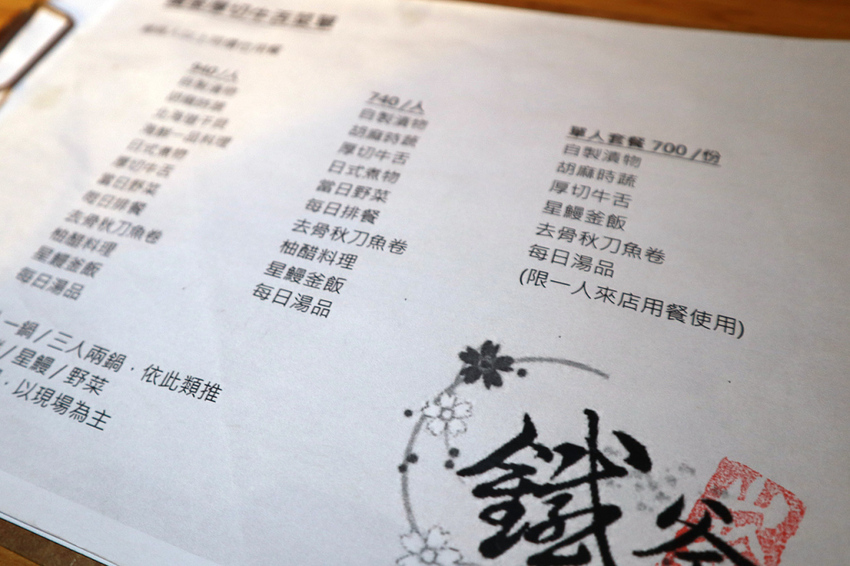 厚切牛舌菜單
940/人
自製漬物
胡麻時蔬
北海道干貝
海鮮一品料理
日式煮物
厚切牛舌
當日野菜
每日排餐
去骨秋刀魚卷
柚醋料理
星鰻釜飯
每日湯品
740/人
自製漬物
胡麻時蔬
厚切牛舌
日式煮物
當日野菜
每日排餐
去骨秋刀魚卷
柚醋料理
星鰻釜飯
每日湯品
單人套餐 700/份
自製漬物
胡麻時蔬
厚切牛舌
星鰻釜飯
去骨秋刀魚卷
每日湯品
(限一人來店用餐使用)
一鍋/三人兩鍋．依此類推
/星鰻/野菜
．以現場為主
鐵釜